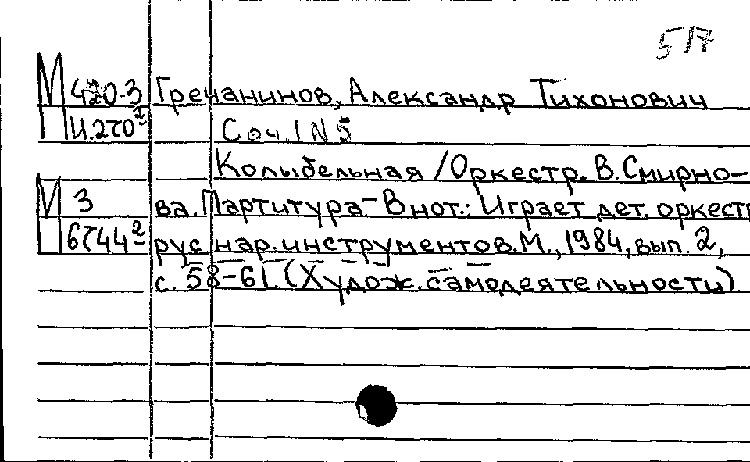 517
М 420-3 Гречанинов, Александр Тихонович
И.270² Соч. 1 N 5
Колыбельная / Оркестр. В. Смирно-
М 3 ва. Партитура - В нот.: Играет дет. оркестр
П 6744² рус. нар. инструментов. М., 1984, вып. 2,
с. 58-61. (Худож. самодеятельности)